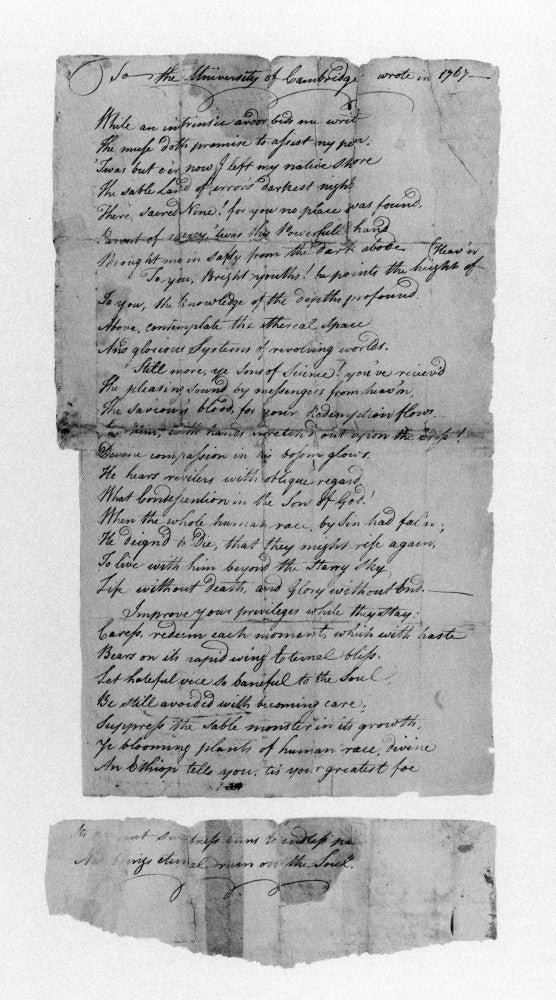 To the University of Cambridge wrote in 1767
While an intrinsic ardor bids me write
The muse doth promise to assist my pen.
'Twas but e'er now I left my native Shore
The sable Land of error's darkest night
There, sacred Nine! for you no place was found,
Parent of mercy, 'twas thy Powerfull hand
Brought me in safty from the dark abode.
To you, Bright youths! he points the height of Heav'n
To you, the knowledge of the depths profound.
Above, contemplate the ethereal space
And glorious Systems of revolving worlds.
Still more, ye Sons of Science! you've reciev'd
The pleasing sound by messengers from heav'n,
The Saviour's blood, for your Redemption flows.
him, with hands stretch'd out upon the Cross!
Divine compassion in his bosom glows.
He hears revilers with oblique regard
What Condescention in the Son of God!
When the whole human race, by Sin had fal'n;
He deign'd to Die, that they might rise again,
To live with him beyond the Starry Sky
Life without death, and Glory without End.
Improve your privileges while they Stay:
Caress, redeem each moment, which with haste
Bears on its rapid wing Eternal bliss.
Let hateful vice so baneful to the Soul,
Be still avoided with becoming care;
Suppress the sable monster in its growth,
Ye blooming plants of human race, divine
An Ethiop tells you, tis your greatest foe
sweetness turns to endless
And brings eternal ruin on the Soul.